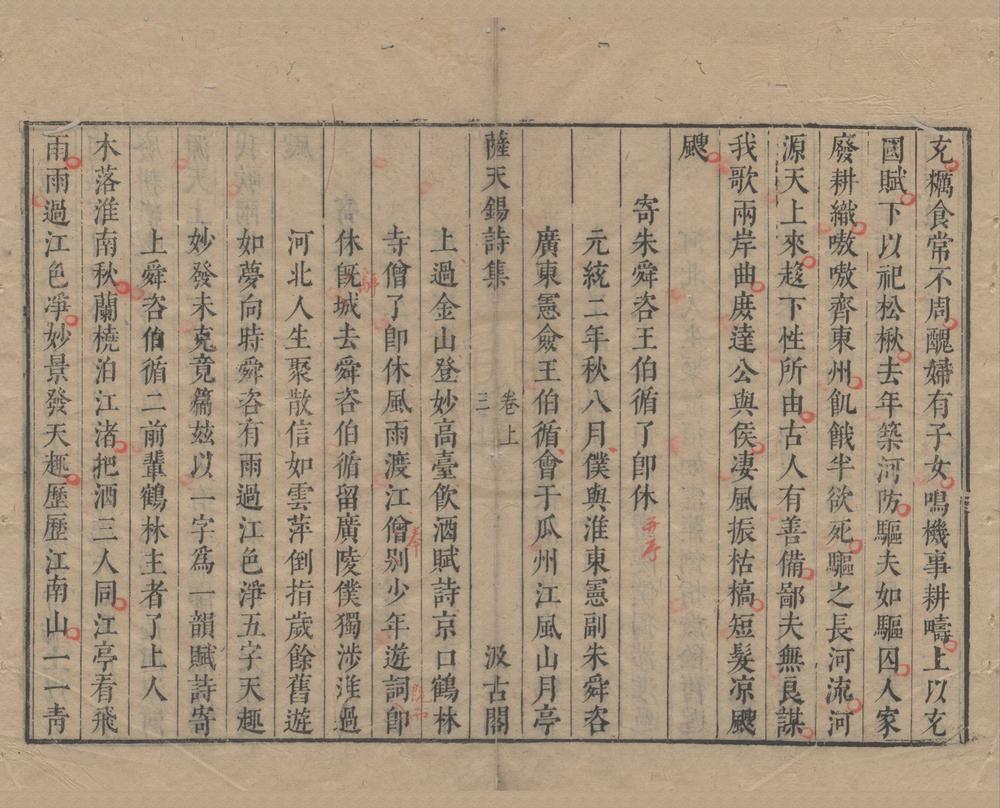 充糲食常不周醜婦有子女鳴機事耕疇上以充
國賦下以祀松楸去年築河防驅夫如驅囚人家
廢耕織嗷嗷齊東州飢餓半欲死驅之長河流河
源天上來趍下性所由古人有善備鄙夫無良謀
我歌兩岸曲庻達公與侯凄風振枯槁短髮凉颼
颼
寄朱舜咨王伯循了即休 并序
元統二年秋八月僕與淮東憲副朱舜咨
廣東憲僉王伯循會于瓜州江風山月亭
薩天錫詩集 卷上 三 汲古閣
上過金山登妙高臺飲酒賦詩京口鶴林
寺僧了即休風雨渡江僧别少年遊詞即
休旣城去舜咨伯循留廣陵僕獨涉淮過
河北人生聚散信如雲萍倒指歲餘舊遊
如夢向時舜咨有雨過江色淨五字天趣
妙發未克竟篇玆以一字爲一韻賦詩寄
上舜咨伯循二前輩鶴林主者了上人
木落淮南秋蘭橈泊江渚把酒三人同江亭看飛
雨雨過江色凈妙景發天趣歷歷江南山一一青